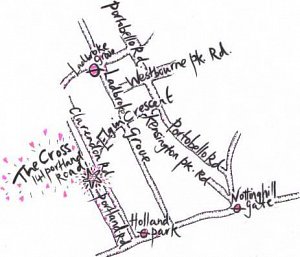 Portobello Rd.
Ladbroke Grove
Westbourne pk. Rd.
Ladbroke Grove
Elgin Crescent
Clarendon Rd.
Kensington pk. Rd
Portobello Rd
The Cross
141 portland Road
portland Rd
Holland park
Nottinghill gate